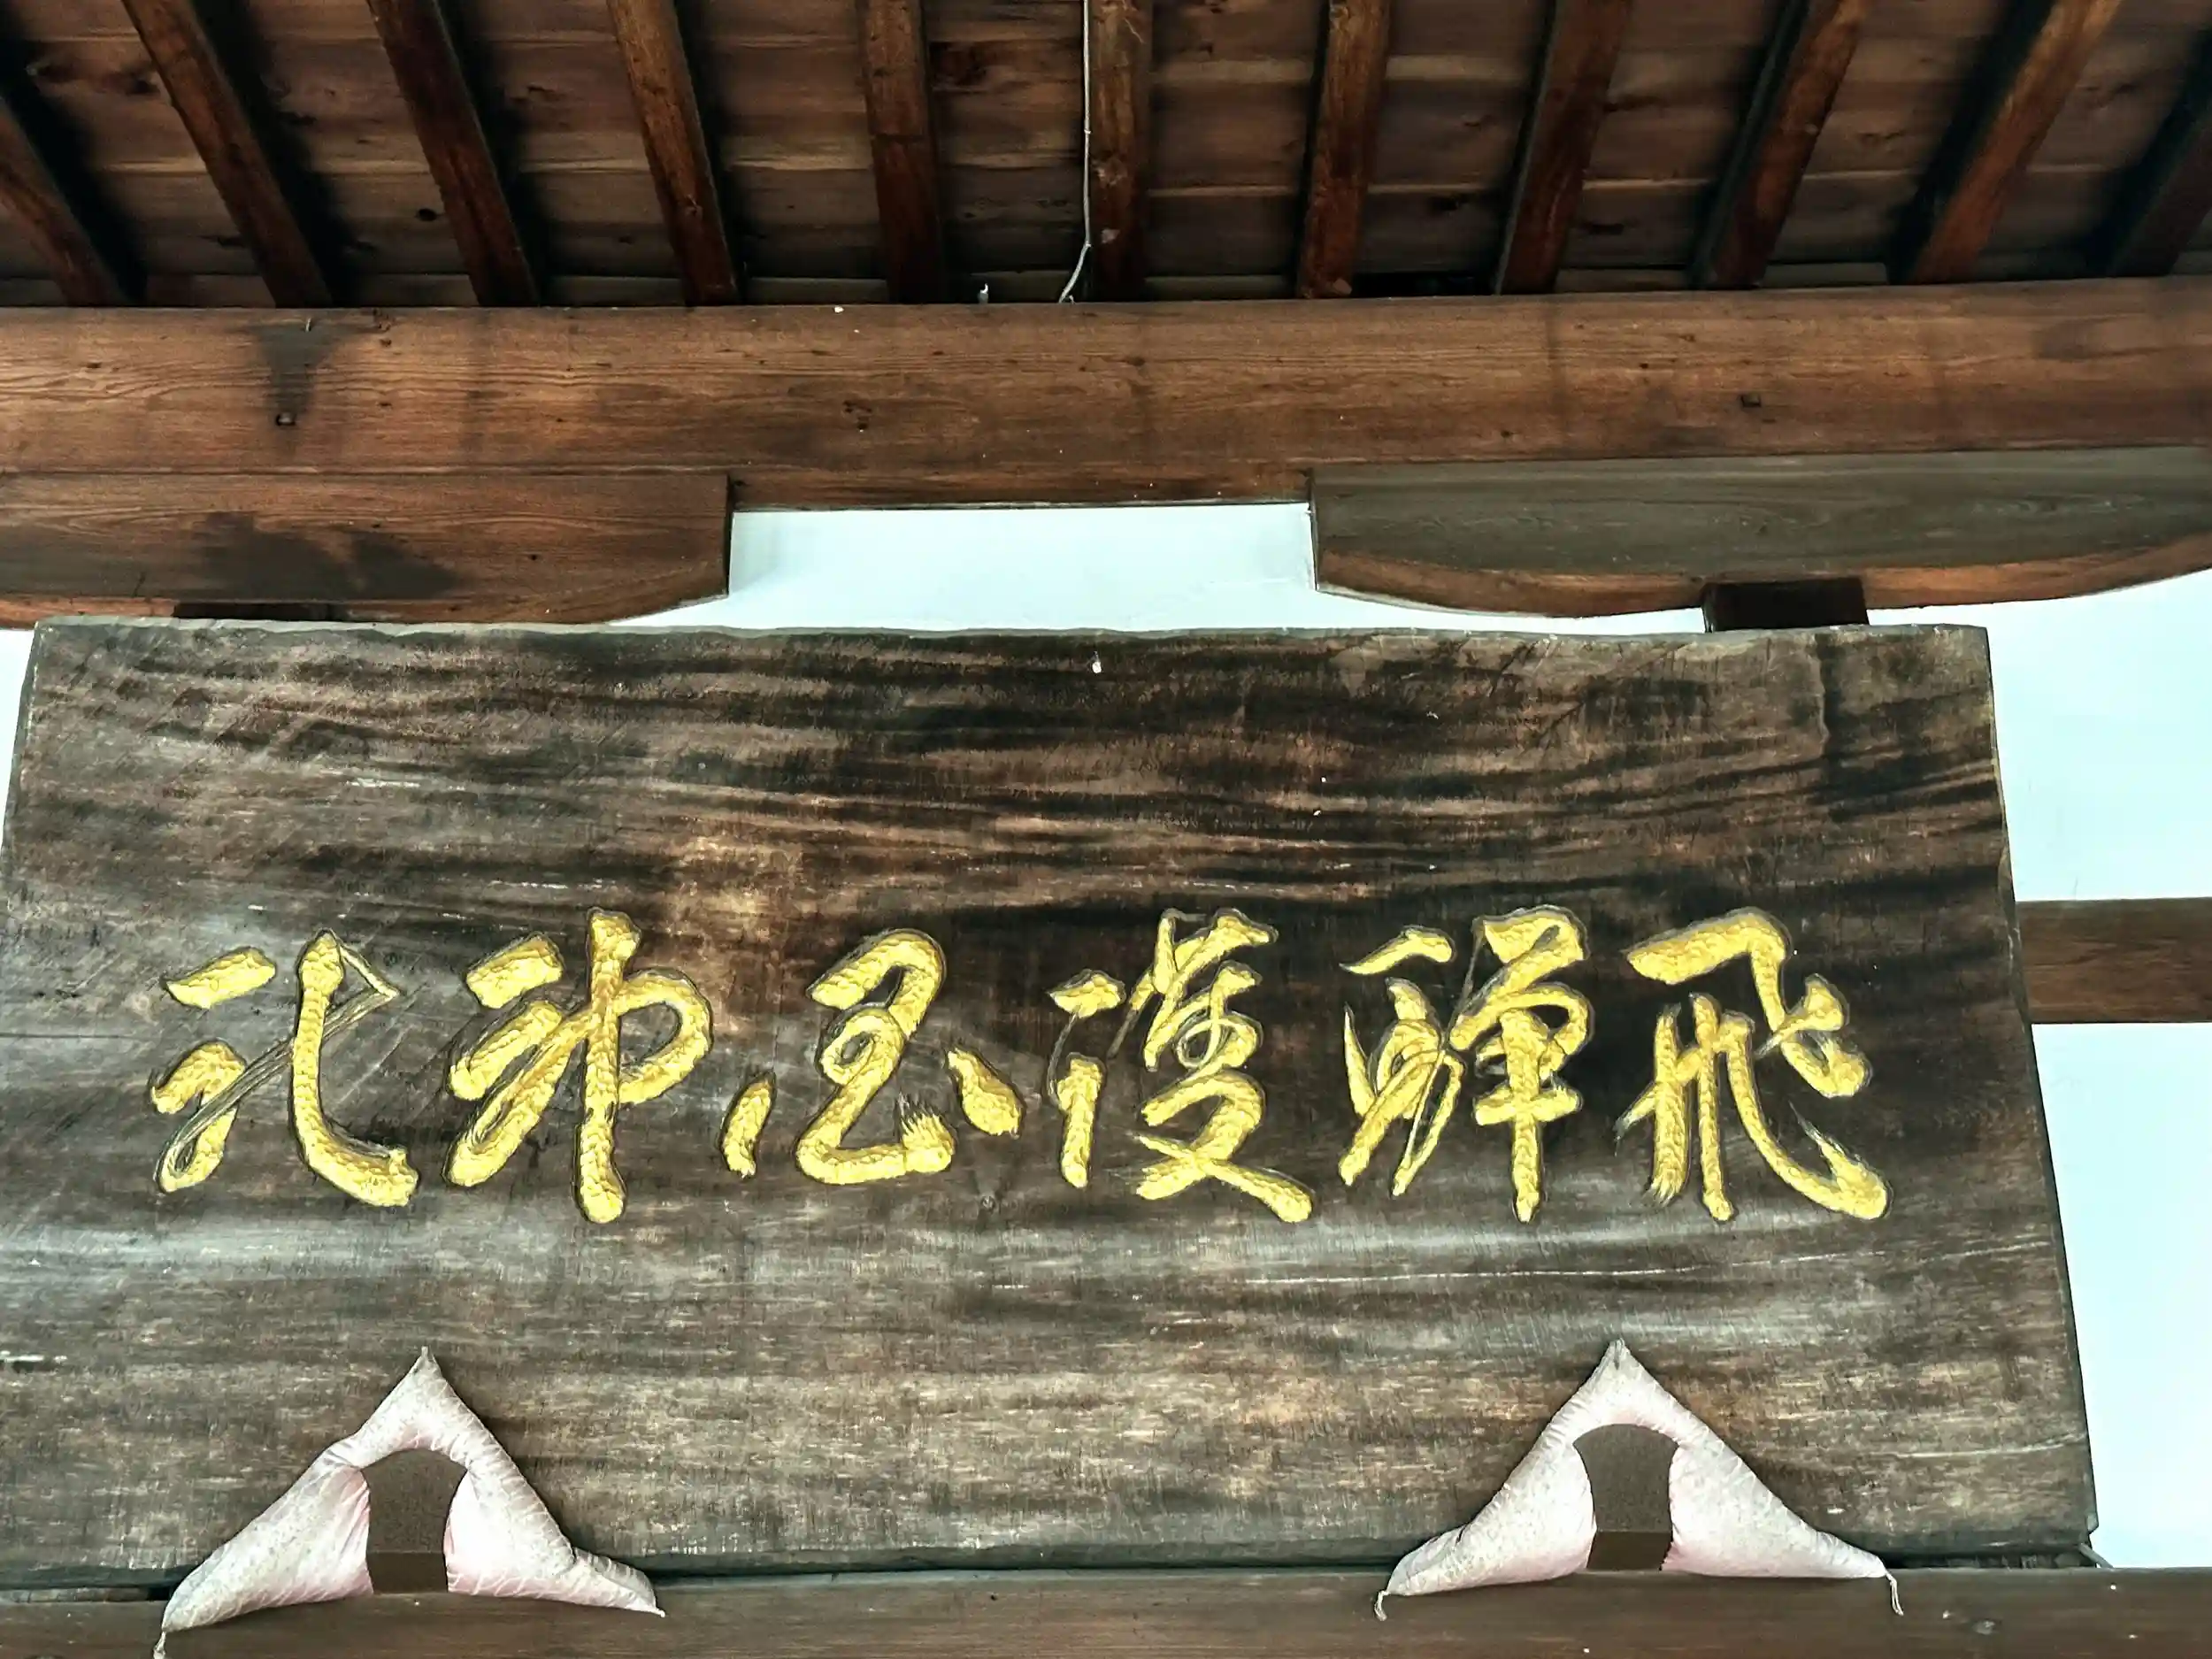 飛騨護国神社